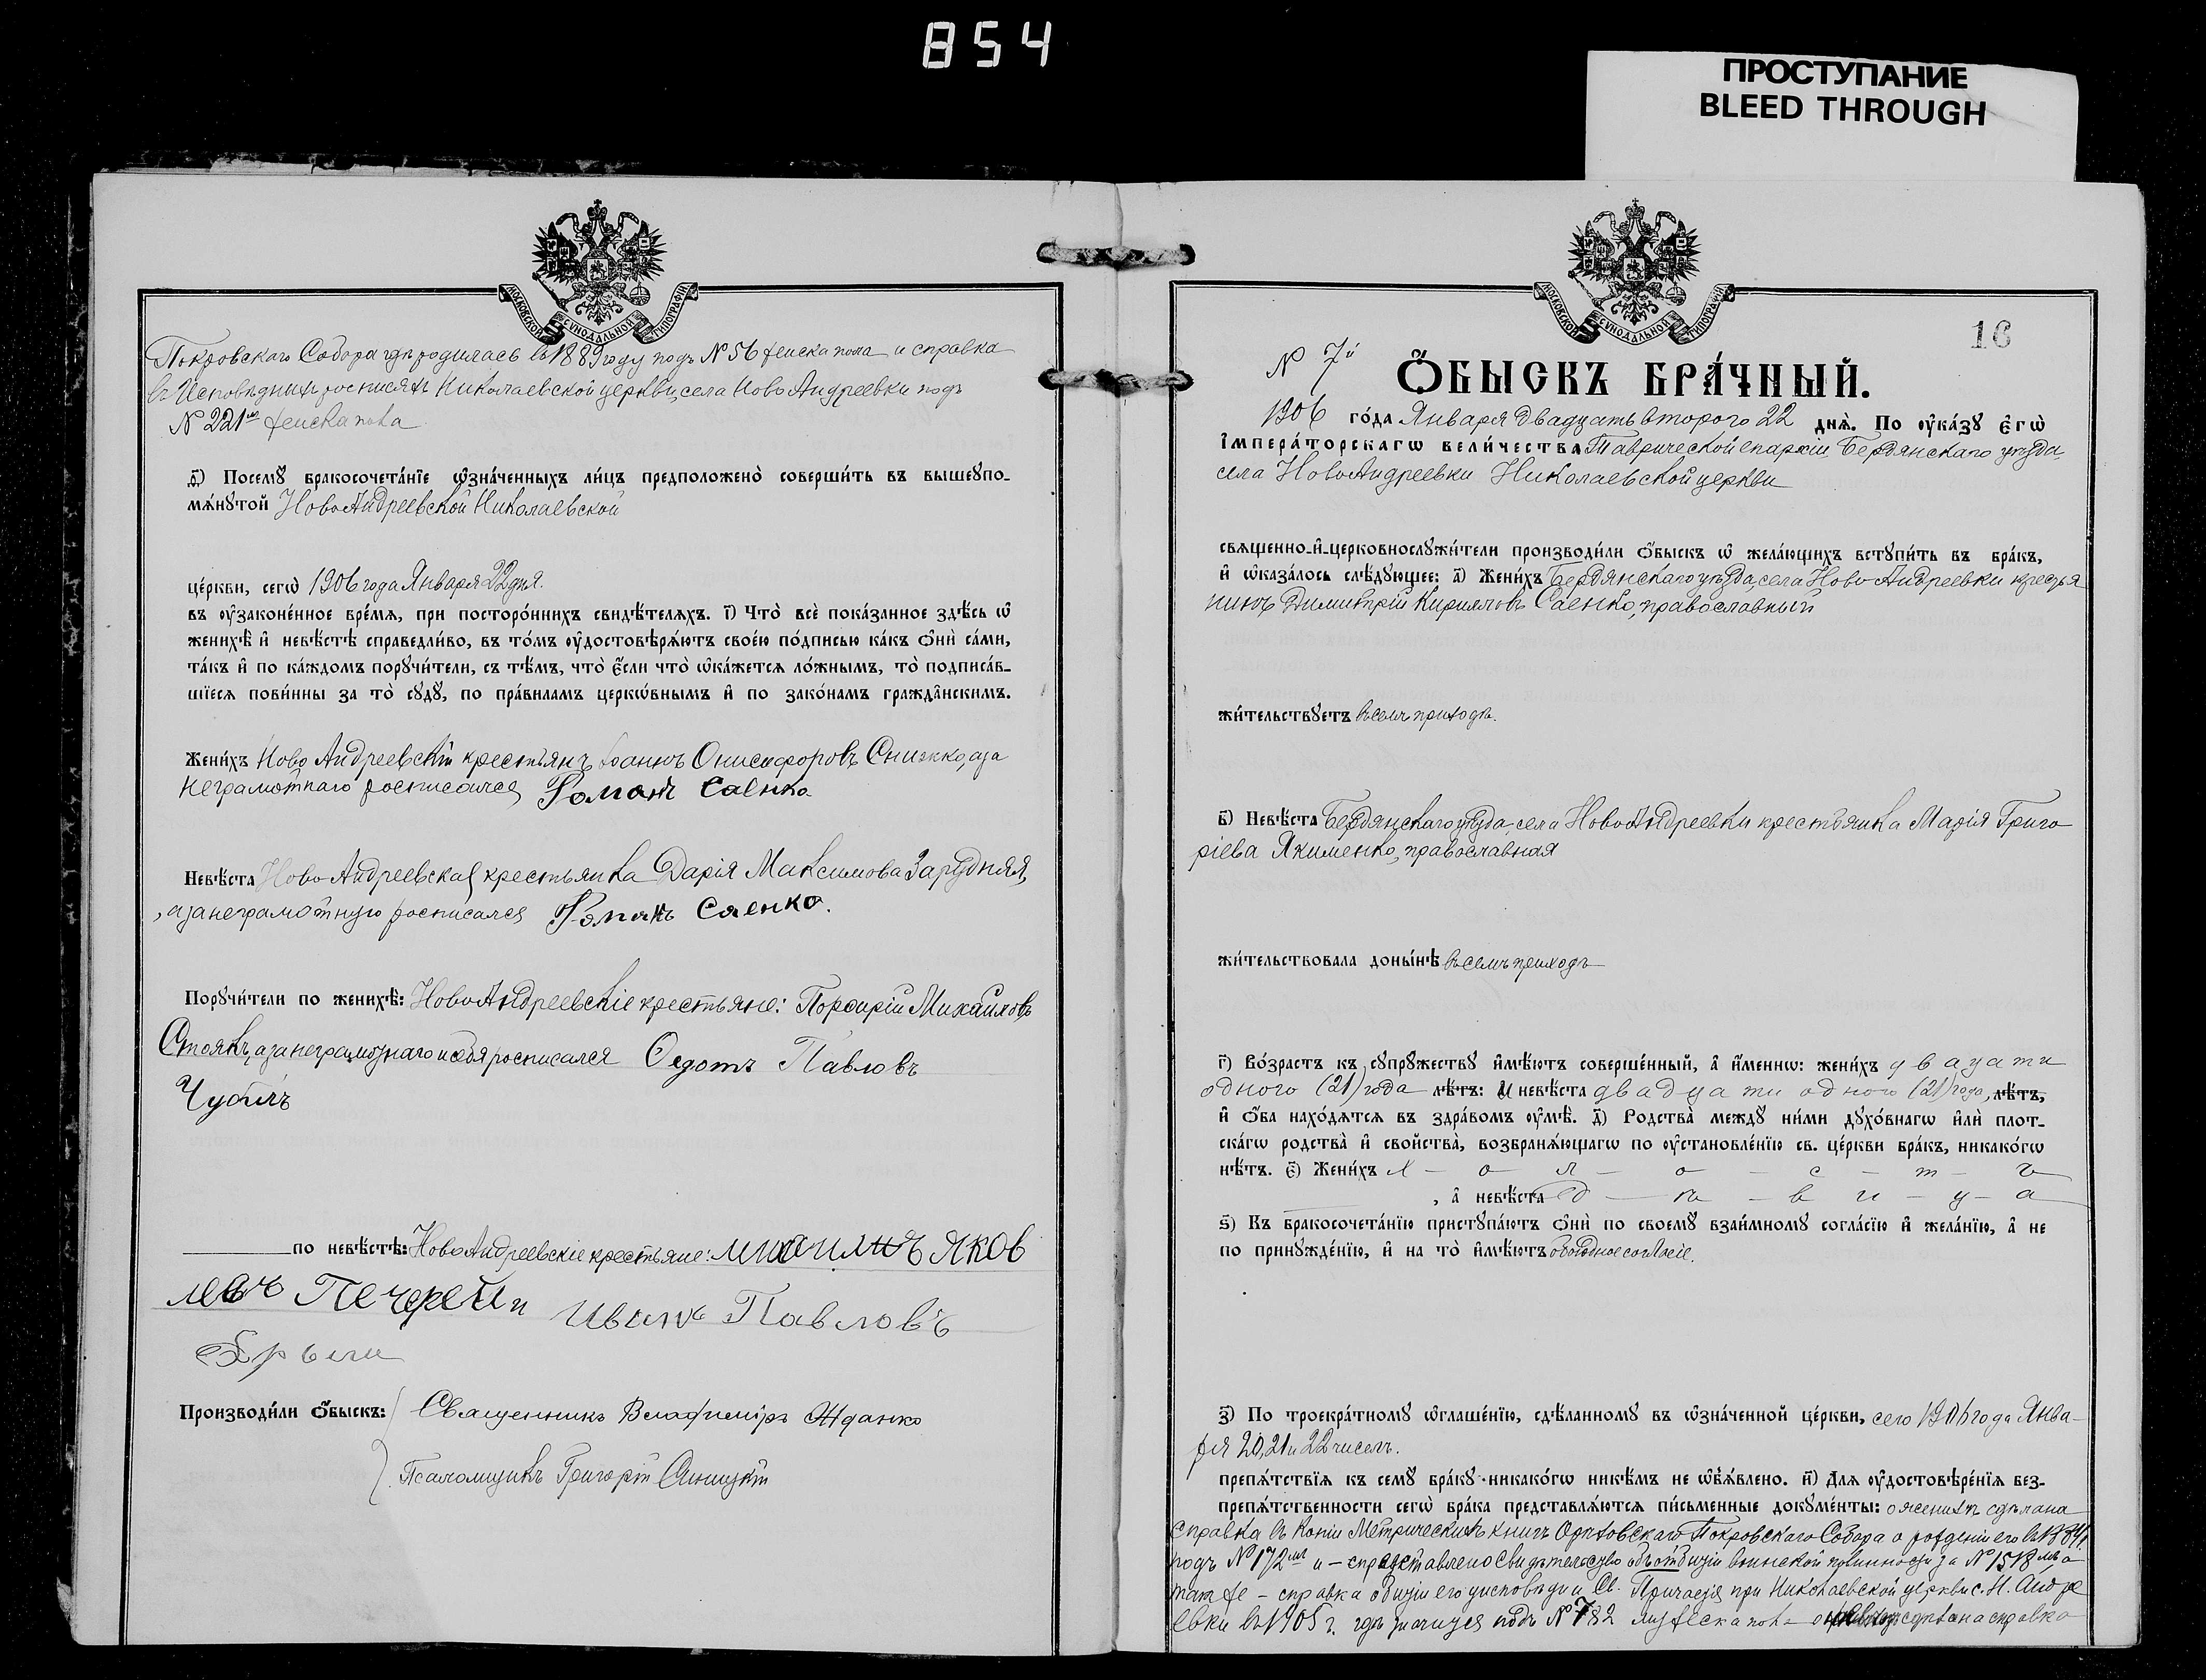 854
ПРОСТУПАНИЕ
BLEED THROUGH
МОСКОВСКОЙ СѴНОДАЛЬНОЙ ТИПОГРАФІИ
Покровскаго Собора гдѣ родилась въ 1889 году подъ № 56 женска пола и справка
въ Исповѣдныхъ росписяхъ Николаевской церкви, села Ново Андреевки подъ
№ 221 женска пола
ѳ҃) Посемꙋ̀ бракосочета́нїе ѡ҆зна́ченныхъ ли́цъ предположено̀ соверши́ть въ вышеꙋпо-
мѧ́нꙋтой НовоАндреевской Николаевской
це́ркви, сегѡ̀ 1906 года Января 22 дня.
въ ᲂу҆законе́нное вре́мѧ, при посторо́ннихъ свидѣ́телѧхъ. і҃) Что̀ всѐ пока́занное здѣ́сь ѡ҆
женихѣ̀ и҆ невѣ́стѣ справедли́во, въ то́мъ ᲂу҆достовѣрѧ́ютъ свое́ю по́дписью ка́къ ѻ҆нѝ са́ми,
та́къ и҆ по ка́ждомъ порꙋчи́тели, съ тѣ́мъ, что̀ є҆́сли что̀ ѡ҆ка́жетсѧ ло́жнымъ, то̀ подписа́в-
шїесѧ пови́нны за то̀ сꙋдꙋ̀, по пра́виламъ церкѡ́внымъ и҆ по зако́намъ гражда́нскимъ.
Жени́хъ Ново Андреевскій крестьянъ Іоаннъ Онисифоровъ Снижко, а за
неграмотнаго росписался Романъ Саенко
Невѣ́ста Ново Андреевская крестьянка Дарія Максимова Зарудняя,
, а за неграмотную росписался Романъ Саенко.
Порꙋчи́тели по женихѣ̀: НовоАндреевскіе крестьяне: Порфирій Михайловъ
Стоянъ, а за неграмотнаго и себя росписался Ѳедотъ Павловъ
Чубилъ
по невѣ́стѣ: НовоАндреевскіе крестьяне: Михаилъ Яков
левъ Печерей и Иванъ Павловъ
Производи́ли ѻ҆́быскъ: Священникъ Владиміръ Жданко
Псаломщикъ Григорій Синицкій
16
МОСКОВСКОЙ СѴНОДАЛЬНОЙ ТИПОГРАФІИ
№ 7й
Ѻ҆́БЫСКЪ БРА́ЧНЫЙ.
1906 го́да Января двадцать второго 22 днѧ̀. По ᲂу҆ка́зꙋ є҆гѡ̀
і҆мпера́торскагѡ вели́чества Таврической епархіи Бердянскаго уѣзда
села НовоАндреевки Николаевской церкви
свѧщенно-и҆-церковнослꙋжи́тели производи́ли ѻ҆́быскъ ѡ҆ жела́ющихъ встꙋпи́ть въ бра́къ,
и҆ ѡ҆каза́лось слѣ́дꙋющее: а҃) Жени́хъ Бердянскаго уѣзда, села Ново Андреевки крестья
нинъ Димитрій Кирилловъ Саенко, православный
жи́тельствꙋетъ въ семъ приходѣ.
в҃) Невѣ́ста Бердянскаго уѣзда, села НовоАндреевки крестьянка Марія Григо
ріева Якименко, православная
жи́тельствовала доны́нѣ въ семъ приходѣ
г҃) Во́зрастъ къ сꙋпрꙋ́жествꙋ и҆мѣ́ютъ соверше́нный, а҆ и҆́меннѡ: жени́хъ двацати
одного (21) года лѣ́тъ: и невѣ́ста двадцати одного (21) года, лѣ́тъ,
и҆ ѻ҆́ба нахо́дѧтсѧ въ здра́вомъ ᲂу҆мѣ̀. д҃) Родства̀ междꙋ̀ ни́ми дꙋхо́внагѡ и҆лѝ плот-
ска́гѡ родства̀ и҆ сво́йства̀, возбранѧ́ющагѡ по ᲂу҆становле́нїю св. це́ркви бра́къ, никако́гѡ
нѣ́тъ. є҃) Жени́хъ х - о - л - о - с - т - ъ
, а҆ невѣ́ста д - ѣ - в - и - ц - а
ѕ҃) Къ бракосочета́нїю пристꙋпа́ютъ ѻ҆нѝ по своемꙋ̀ взаи́мномꙋ согла́сїю и҆ жела́нїю, а҆ не
по принꙋжде́нїю, и҆ на то̀ и҆мѣ́ютъ обоюдное согласіе.
з҃) По троекра́тномꙋ ѡ҆глаше́нїю, сдѣ́ланномꙋ въ ѡ҆зна́ченной це́ркви, сего 1906 года Янва-
ря 20, 21 и 22 чиселъ.
препѧ́тствїѧ къ семꙋ̀ бра́кꙋ никако́гѡ никѣ́мъ не ѡ҆б̾ѧ́влено. и҃) Для ᲂу҆достовѣре́нїѧ без-
препѧ́тственности сегѡ̀ бра́ка представлѧ́ютсѧ пи́сьменные докꙋме́нты: о женихѣ сдѣлана
справка въ копіи Метрическихъ книгъ Орѣховскаго Покровскаго Собора о рожденіи его въ 1884 г.
подъ № 172 и - представлено свидѣтельство объ отбытіи воинской повинности за № 1518 а
также - справка о бытіи его у исповѣди и Св. Причастія при Николаевской церкви с. Н. Андре
евки въ 1905 г. гдѣ значится подъ № 782 мужеска пола - сдѣлана справка